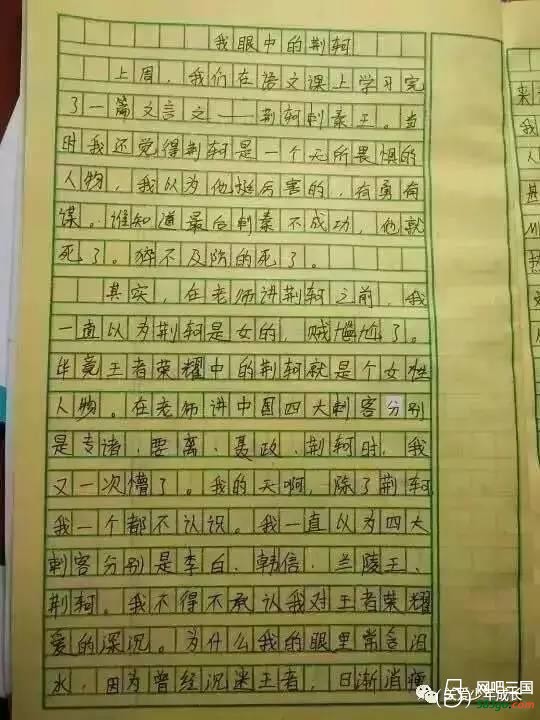 我眼中的荆轲
上周，我们在语文课上学习完
了一篇文言文——荆轲刺秦王。当
时我还觉得荆轲是一个无所畏惧的
人物，我认为他挺厉害的，有勇有
谋。谁知道最后刺秦不成功，他就
死了。猝不及防的死了。
其实，在老师讲荆轲之前，我
一直以为荆轲是女的，贼尴尬了。
毕竟王者荣耀中的荆轲就是个女性
人物。在老师讲中国四大刺客分别
是专诸、要离、聂政、荆轲时，我
又一次懵了。我的天啊，除了荆轲，
我一个都不认识。我一直以为四大
刺客分别是李白、韩信、兰陵王、
荆轲。我不得不承认我对王者荣耀
爱的深沉。为什么我的眼里常含泪
水，因为曾经沉迷王者，日渐消瘦
来
我
人
网吧三国
青少年成长